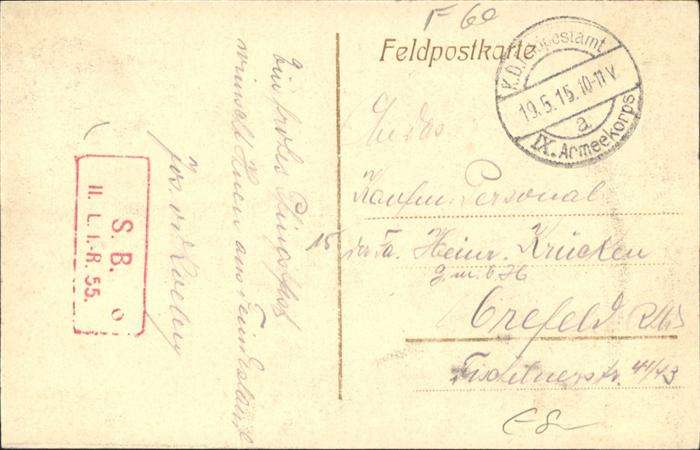 F 60
Feldpostkarte
K.D. Feldpostamt
19.5.15. 10-11 V.
a
IX. Armeekorps
An das
Kaufm. Personal
der Fa. Heinr. Krücken
G.m.b.H
Crefeld
41/43
Ein frohes Pfingstfest
wünscht Ihnen aus Feindesland
Jos.
15
S. B.
II. L. I. R. 55.